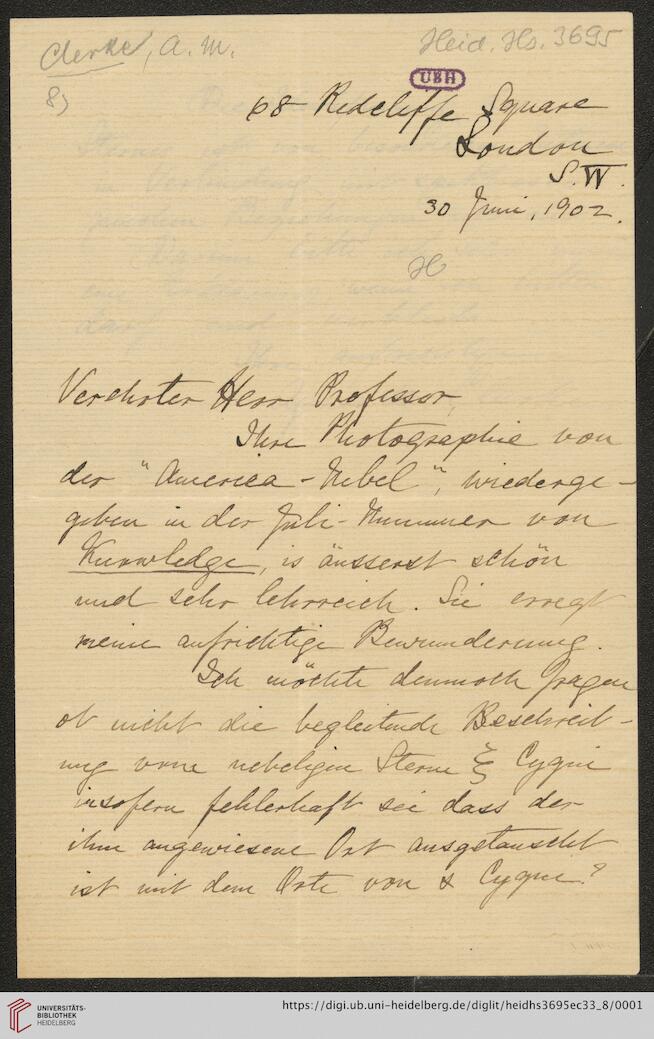 Clerke, A. M.
Heid. Hs. 3695
8)
UBH
68 Redcliffe Square
London
S.W.
30 Juni, 1902.
H
Verehrter Herr Professor,
Ihre Photographie von
der "America-Nebel", wiederge-
geben in der Juli-Nummer von
Knowledge, is äusserst schön
und sehr lehrreich. Sie erregt
meine aufrichtige Bewunderung.
Ich möchte dennoch fragen
ob nicht die begleitende Beschreib-
ung vom nebeligen Sterne ξ Cygni
insofern fehlerhaft sei dass der
ihm angewiesene Ort ausgetauscht
ist mit dem Orte von α Cygni?
UNIVERSITÄTS-
BIBLIOTHEK
HEIDELBERG
https://digi.ub.uni-heidelberg.de/diglit/heidhs3695ec33_8/0001